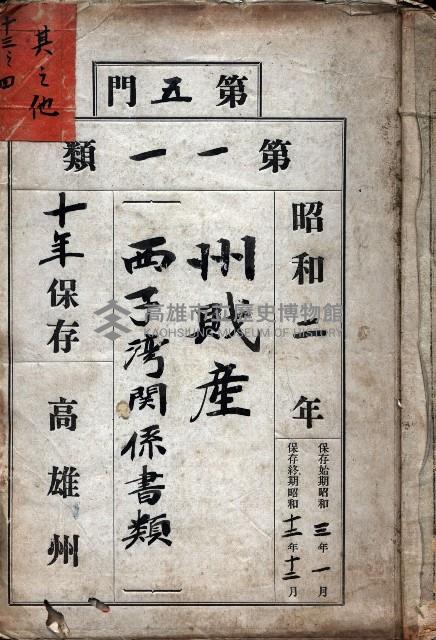 其之他
十三之四
第五門
第一一類
昭和二年
保存始期昭和三年一月
保存終期昭和十二年十二月
州賊産
西子灣関係書類
十年保存
高雄州
高雄市立歷史博物館
KAOHSIUNG MUSEUM OF HISTORY